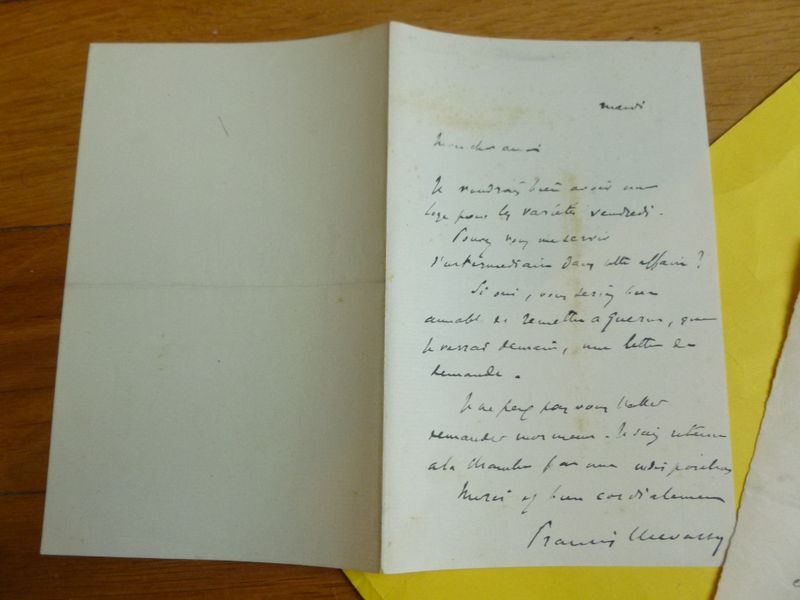 mardi
Mon cher ami
Je voudrais bien avoir une
loge pour les variétés vendredi.
Pouvez vous me servir
d'intermédiaire dans cette affaire ?
Si oui, vous seriez bien
aimable de remettre a que
je verrai demain, une lettre de
demande.
Je ne peux pas vous l'aller
demander moi meme. Je suis retenu
a la chambre par une indisposition
Merci et bien cordialement
Francis